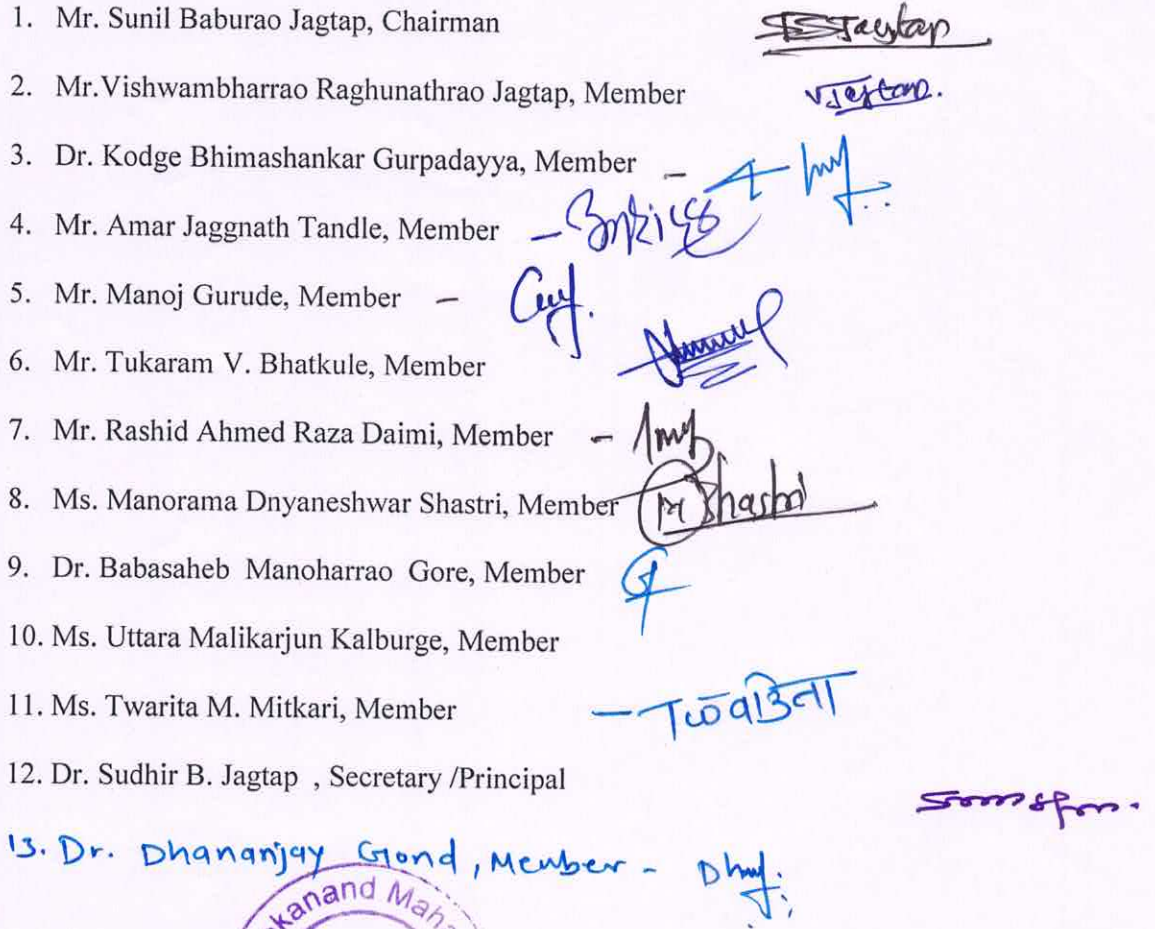 1. Mr. Sunil Baburao Jagtap, Chairman SJagtap
2. Mr.Vishwambharrao Raghunathrao Jagtap, Member VJagtap.
3. Dr. Kodge Bhimashankar Gurpadayya, Member –
4. Mr. Amar Jaggnath Tandle, Member –
5. Mr. Manoj Gurude, Member –
6. Mr. Tukaram V. Bhatkule, Member
7. Mr. Rashid Ahmed Raza Daimi, Member –
8. Ms. Manorama Dnyaneshwar Shastri, Member M Shastri
9. Dr. Babasaheb Manoharrao Gore, Member
10. Ms. Uttara Malikarjun Kalburge, Member
11. Ms. Twarita M. Mitkari, Member –
12. Dr. Sudhir B. Jagtap , Secretary /Principal
13. Dr. Dhananjay Gond, Member -
kanand Maha